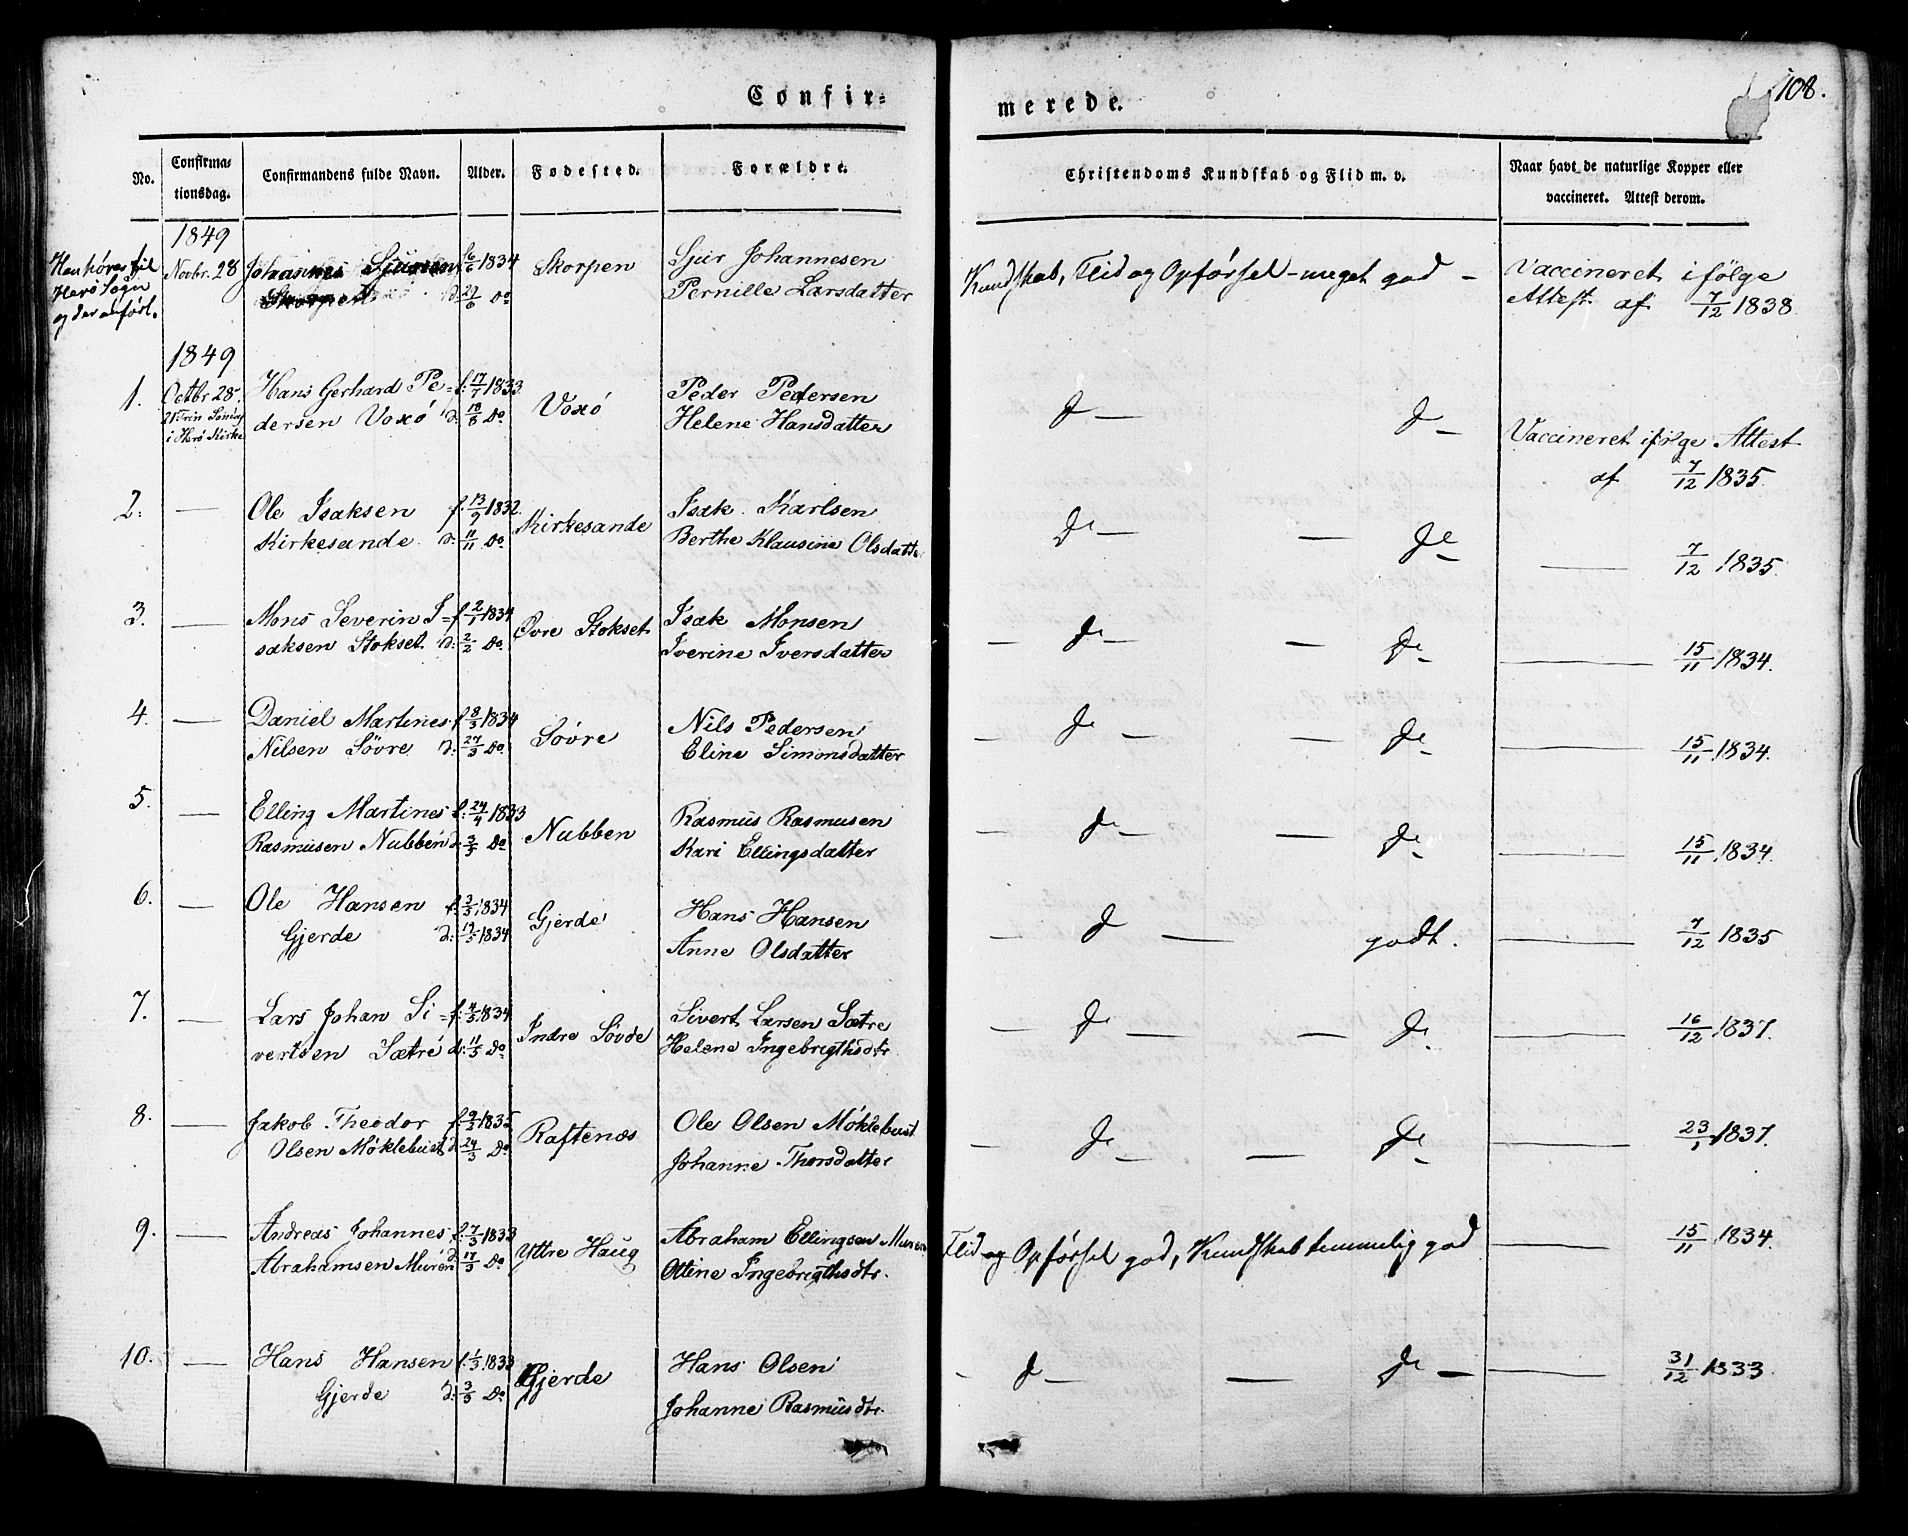 Confir-
merede.
108.
No.
Confirma-
tionsdag.
Confirmandens fulde Navn.
Alder.
Fødested.
Forældre.
Christendoms Kundskab og Flid m. v.
Naar havt de naturlige Kopper eller
vaccineret. Attest derom.
Han hører til
Herö Sogn
og der anført.
1849
Novbr. 28
Johannes Sjursen
f. 6/6 1834
d. 29/6 Do
Skorpen
Sjur Johannesen
Pernille Larsdatter
Kundskab, Flid og Opførsel - meget god -
Vaccineret ifølge
Attest af 7/12 1838
1849
1. Octbr 28.
21 Trin Søndag
i Herö Kirke
Hans Gerhard Pe= f. 17/7 1833
dersen Voxö d. 18/8 Do
Voxö
Peder Pedersen
Helene Hansdatter
Do — Do —
Vaccineret ifølge Attest
af 7/12 1835
2. — Ole Isaksen f. 13/9 1832
Kirkesande d. 11/11 Do
Kirkesande
Isak Karlsen
Berthe Klausine Olsdatter
Do — — Do —
— 7/12 1835
3. — Mons Severin I= f. 2/1 1834
saksen Stokset d. 2/2 Do
Øvre Stokset
Isak Monsen
Iverine Iversdatter
— Do — — Do —
— 15/11 1834.
4. — Daniel Martines f. 8/3 1834
Nilsen Sövre d. 27/3 Do
Sövre
Nils Pedersen
Eline Simonsdatter
— Do — — Do —
— 15/11 1834.
5. — Elling Martines f. 24/4 1833
Rasmusen Nubben d. 3/5 Do
Nubben
Rasmus Rasmusen
Kari Ellingsdatter
— Do — — Do —
— 15/11 1834.
6. — Ole Hansen f. 3/5 1834
Gjerde d. 19/5 1834
Gjerde
Hans Hansen
Anne Olsdatter
— Do — godt.
— 7/12 1835
7. — Lars Johan Si= f. 4/5 1834
vertsen Sætre d. 11/5 Do
Indre Sövde
Sivert Larsen Sætre
Helene Ingebrigthsdtr
— Do — — Do —
— 16/12 1837.
8. — Jakob Theodor f. 9/2 1835
Olsen Möklebust d. 24/3 Do
Raftenæs
Ole Olsen Möklebust
Johanne Thorsdatter
— Do — — Do —
— 23/1 1837.
9. — Andreas Johannes f. 7/3 1833
Abrahamsen Muren d. 17/3 Do
Yttre Haug
Abraham Ellingsen Muren
Oline Ingebrigthsdtr.
Flid og Opførsel god, Kundskab temmelig god
— 15/11 1834.
10. — Hans Hansen f. 1/3 1833
Gjerde d. 3/3 Do
Gjerde
Hans Olsen
Johanne Rasmusdtr
— Do — — Do —
— 31/12 1833